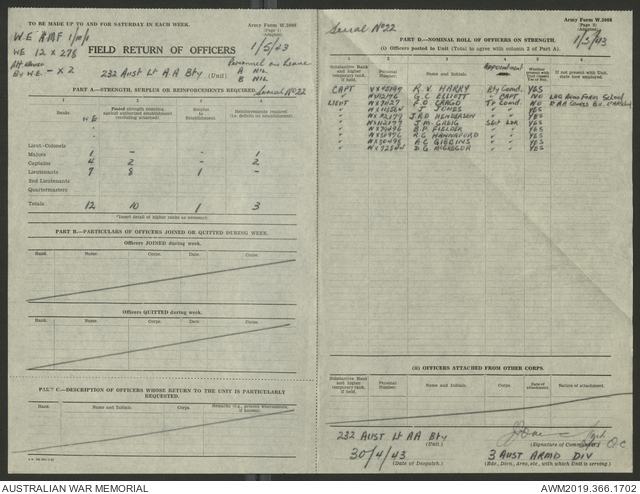 TO BE MADE UP TO AND FOR SATURDAY IN EACH WEEK.
Army Form W.3008
(Page 1)
(Adapted)
W.E. AMF 1/10/1
WE 12 x 278
- x 2
1/5/43
FIELD RETURN OF OFFICERS
Personnel on Leave
A NIL
B NIL
232 Aust Lt A A Bty (Unit)
Serial No 22
PART A—STRENGTH, SURPLUS OR REINFORCEMENTS REQUIRED.
1 2 3 4
Ranks. Posted strength counting against authorized establishment (excluding attached). Surplus to Establishment. Reinforcements required (to deficits on establishment).
W E
Lieut-Colonels
Majors 1 - - 1
Captains 4 2 - 2
Lieutenants 7 8 1 -
2nd Lieutenants
Quartermasters
Totals 12 10 1 3
*Insert detail of higher ranks as necessary.
PART B.—PARTICULARS OF OFFICERS JOINED OR QUITTED DURING WEEK.
Officers JOINED during week.
Rank. Name. Corps. Date.
Officers QUITTED during week.
Rank. Name. Corps. Date. Cause.
PART C.—DESCRIPTION OF OFFICERS WHOSE RETURN TO THE UNIT IS PARTICULARLY REQUESTED.
Rank. Name and Initials. Corps.
Army Form W.3008
(Page 2)
(Adapted)
Serial No 22
1/5/43
PART D.—NOMINAL ROLL OF OFFICERS ON STRENGTH.
(i) Officers posted to Unit (Total to agree with column 2 of Part A).
1 2 3 4 5 6
Substantive Rank and higher temporary rank, if held. Personal Number. Name and Initials. Appointment Whether present with Unit. Yes or No. If not present with Unit, state how employed.
CAPT R.V. HARRY Bty Comd. YES
" G.C. ELLIOTT " CAPT NO
LIEUT F.O. CRAGO Tp Comd. NO
" J. JONES " " YES
" J.R.D HENDERSON " " YES
" J.M. GREIG YES
" B.P. FIELDER " " YES
" R.G. HANNAFORD " " YES
" A.C. GIBBINS " " YES
" D.G. McGREGOR " " YES
(ii) OFFICERS ATTACHED FROM OTHER CORPS.
Substantive Rank and higher temporary rank, if held. Personal Number. Name and Initials. Corps. Date of attachment. Nature of attachment.
232 AUST Lt AA Bty
(Unit) (Signature of Commander) OC
30/4/43 3 AUST ARMD DIV
(Date of Despatch) (Bde., Divn., Area, etc., with which Unit is serving.)
AUSTRALIAN WAR MEMORIAL
AWM2019.366.1702